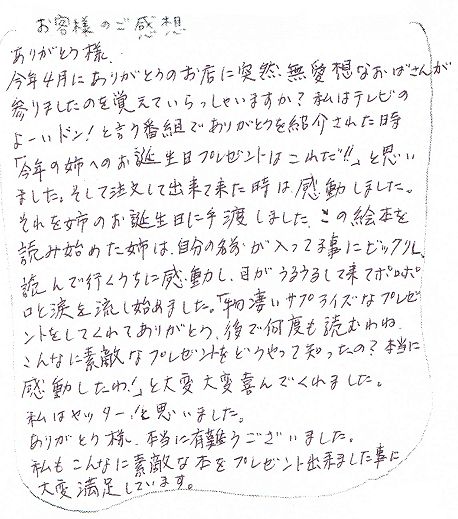 お客様のご感想
ありがとう様.
今年4月にありがとうのお店に突然無愛想なおばさんが
参りましたのを覚えていらっしゃいますか？私はテレビの
よーいドン！と言う番組でありがとうを紹介された時
「今年の姉へのお誕生日プレゼントはこれだ!!」と思い
ました。そして注文して出来て来た時は感動しました。
それを姉のお誕生日に手渡しました。この絵本を
読み始めた姉は、自分の名前が入ってる事にビックリし、
読んで行くうちに感動し、目がうるうるして来てポロポ
ロと涙を流し始めました。「物凄いサプライズなプレゼ
ントをしてくれてありがとう、後で何度も読むわね.
こんなに素敵なプレゼントをどうやって知ったの？本当に
感動したわ！」と大変大変喜んでくれました。
私はヤッター！と思いました。
ありがとう様、本当に有難うございました。
私もこんなに素敵な本をプレゼント出来ました事に
大変満足しています。